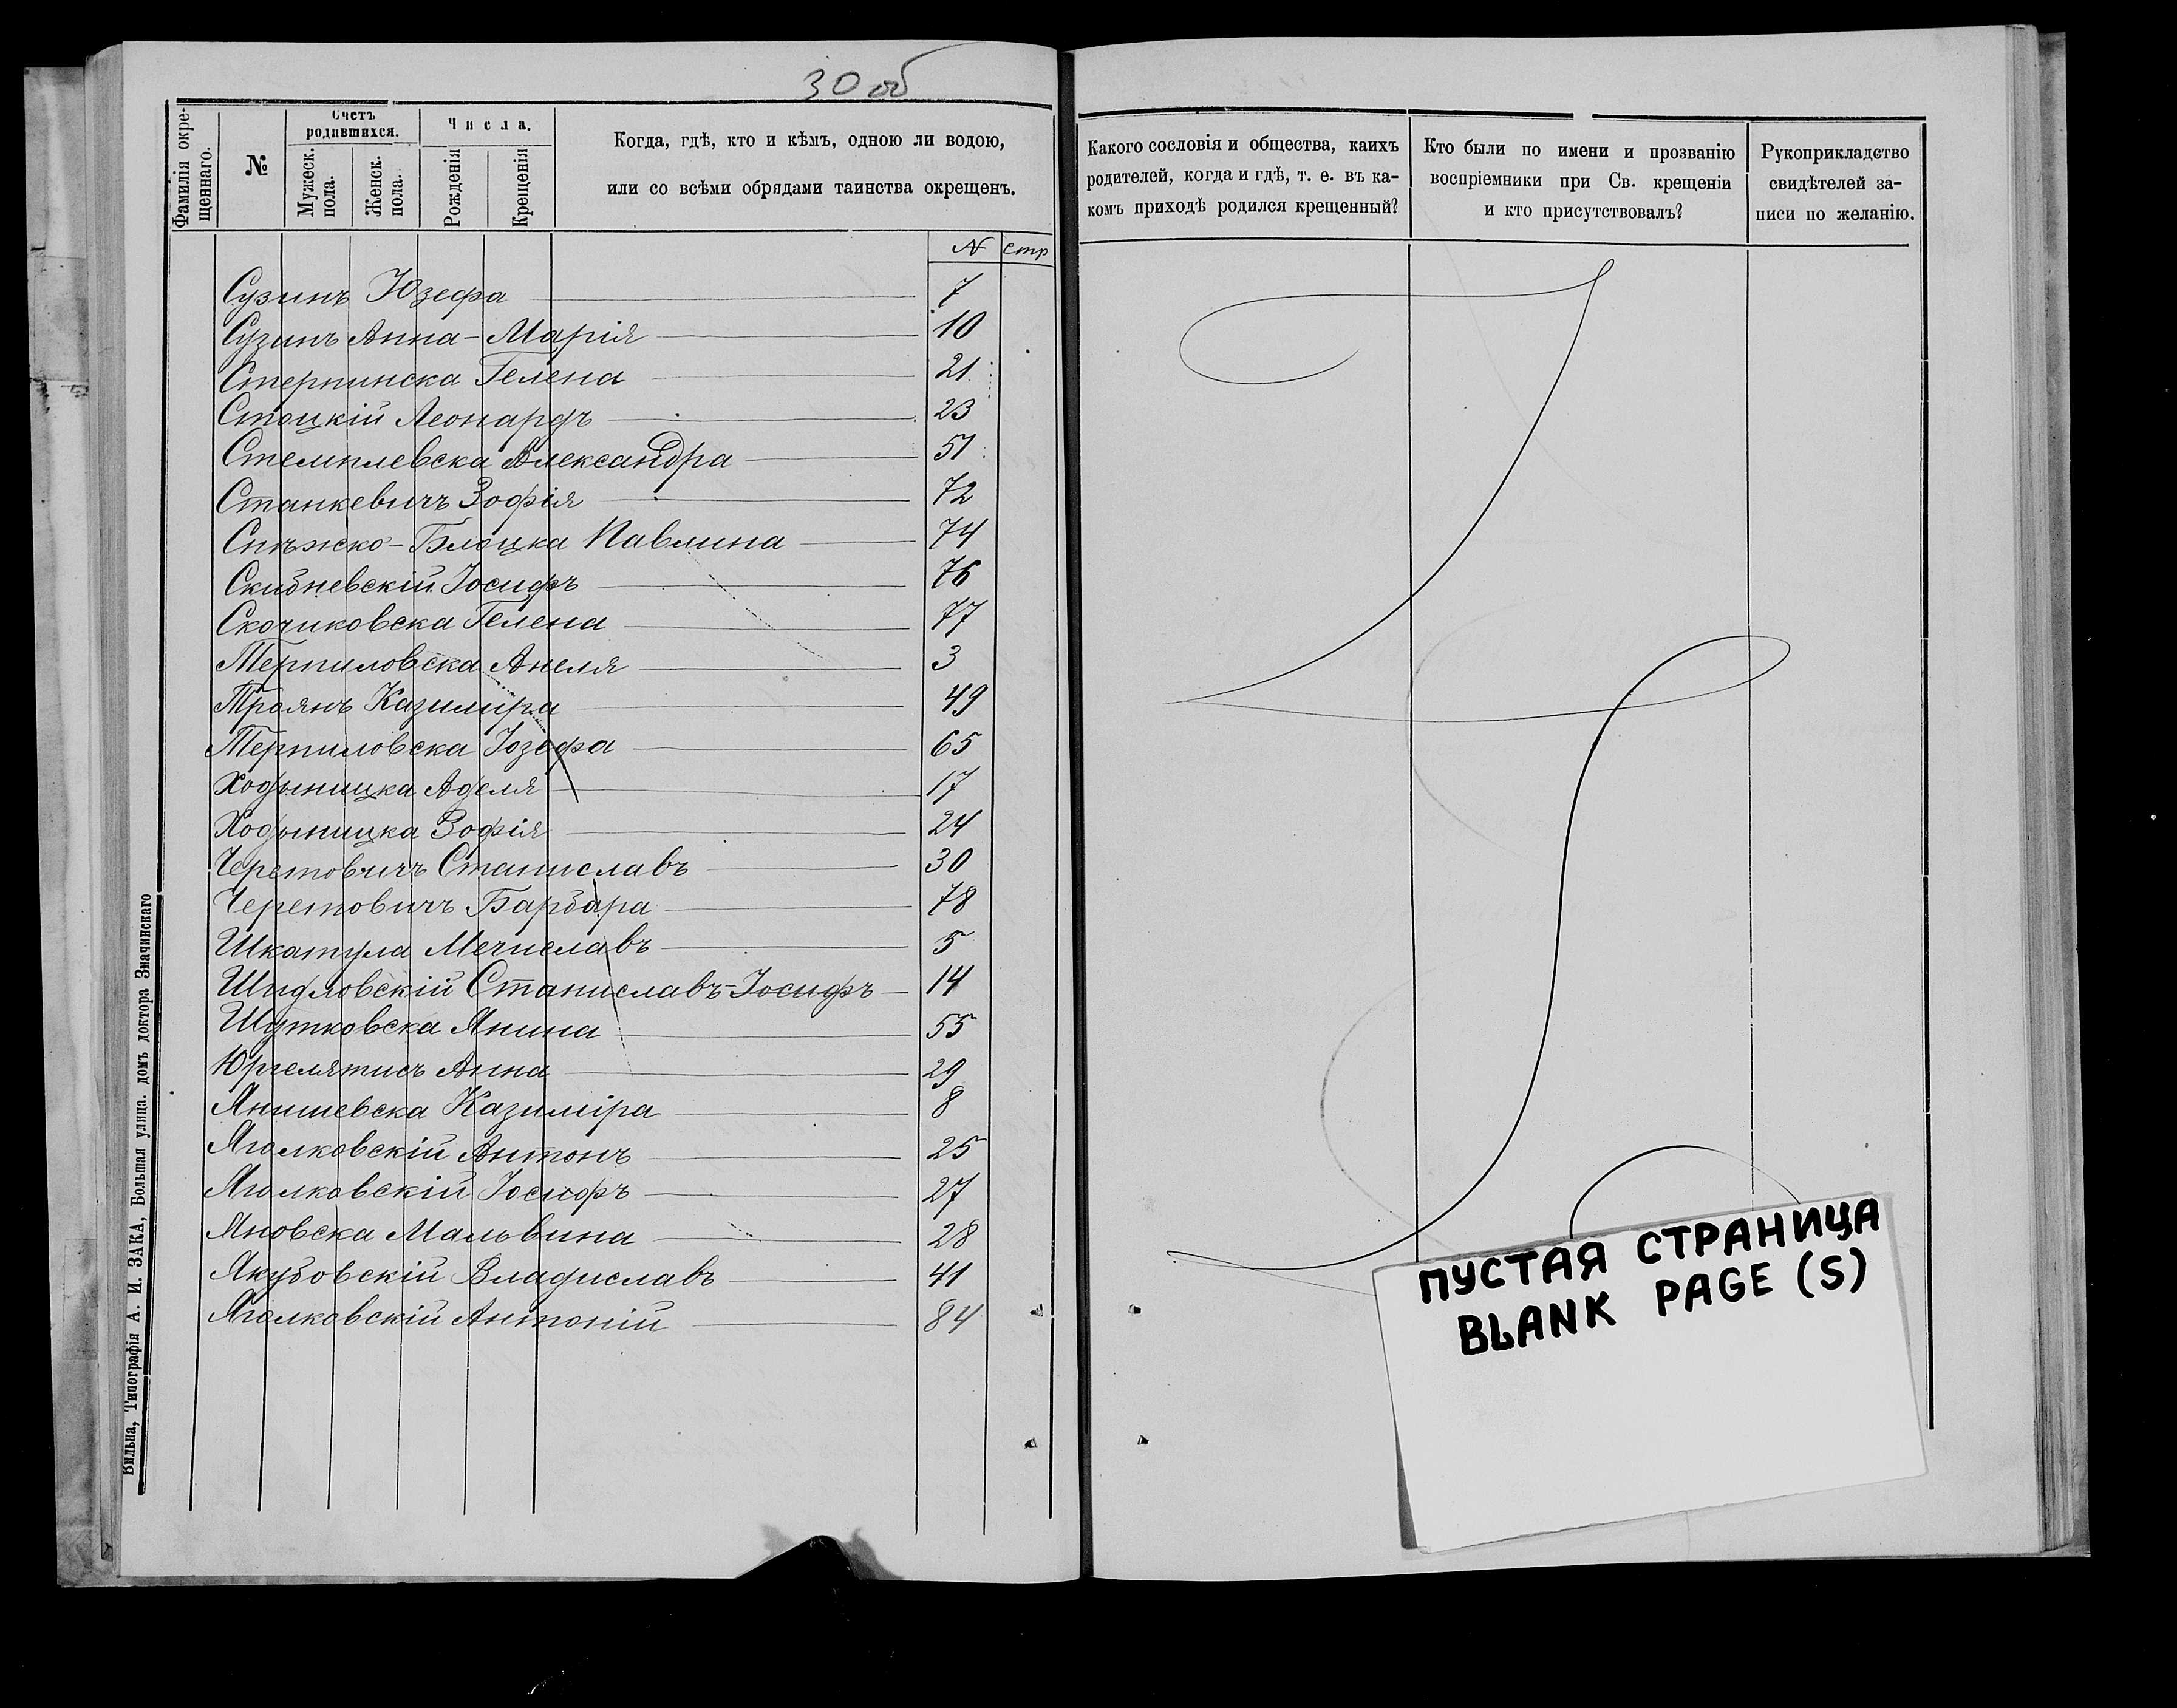 30 об
Фамилія окре-
щеннаго.
№
Счетъ
родившихся.
Мужеск.
пола.
Женск.
пола.
Числа.
Рожденія
Крещенія
Когда, гдѣ, кто и кѣмъ, одною ли водою,
или со всѣми обрядами таинства окрещенъ.
N стр
Сузинъ Юзефа 7
Сузинъ Анна-Марія 10
Стерпинска Гелена 21
Стоцкій Леонардъ 23
Стемплевска Александра 51
Станкевичъ Зофія 72
Снѣжко-Блоцка Павлина 74
Скибневскій Іосифъ 76
Скочиковска Гелена 77
Терпиловска Анеля 3
Троянъ Казимира 49
Терпиловска Іозефа 65
Ходыницка Аделя 17
Ходыницка Зофія 24
Черетовичъ Станиславъ 30
Черетовичъ Барбара 78
Шкатула Мечиславъ 5
Шидловскій Станиславъ-Іосифъ 14
Шутковска Янина 55
Юргелятисъ Анна 29
Янишевска Казиміра 8
Яголковскій Антонъ 25
Яголковскій Іосифъ 27
Яновска Мальвина 28
Якубовскій Владиславъ 41
Яголковскій Антоній 84
Вильна, Типографія А. И. ЗАКА, Большая улица. домъ доктора Значинскаго
Какого сословія и общества, каихъ
родителей, когда и гдѣ, т. е. въ ка-
комъ приходѣ родился крещенный?
Кто были по имени и прозванію
воспріемники при Св. крещеніи
и кто присутствовалъ?
Рукоприкладство
свидѣтелей за-
писи по желанію.
ПУСТАЯ СТРАНИЦА
BLANK PAGE (S)